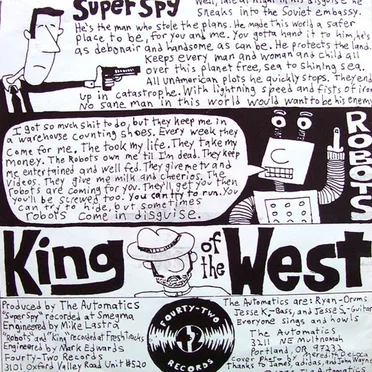 Super Spy
Well, late at night in his disguise he
Sneaks into the Soviet embassy.
He's the man who stole the plans. He made this world a safer
place to be, for you and me. You gotta hand it to him, he's
as debonair and handsome as can be. He protects the land.
Keeps every man and woman and child all
over this planet free, sea to shining sea.
All unAmerican plots he quickly stops. They end
up in catastrophe. With lightning speed and fists of iron
No sane man in this world would want to be his enemy
I got so much shit to do, but they keep me in
a warehouse counting shoes. Every week they
come for me. The took my life. They take my
money. The Robots own me til I'm dead. They keep
me entertained and well fed. They give me tv and
videos. They give me milk and cheerios. The
robots are coming for you. They'll get you then
you'll be screwed too. You can try to run. You
can try to hide, but sometimes
robots come in disguise.
ROBOTS
King of the West
Produced by The Automatics
"Super Spy" recorded at Smegma
Engineered by Mike Lastra
"Robots" and "King" recorded at Fresh Tracks
Engineered by Mark Edwards
Forty-Two Records
3101 Oxford Valley Road Unit #520
FORTY-TWO
42
RECORDS
The Automatics are: Ryan-Drums
Jesse K-Bass, and Jesse S-Guitar
Everyone sings and howls
The Automatics
3211 NE Multnomah
Portland, OR 97232
cover photo by
Thanks to James, adidas, and John Wayne